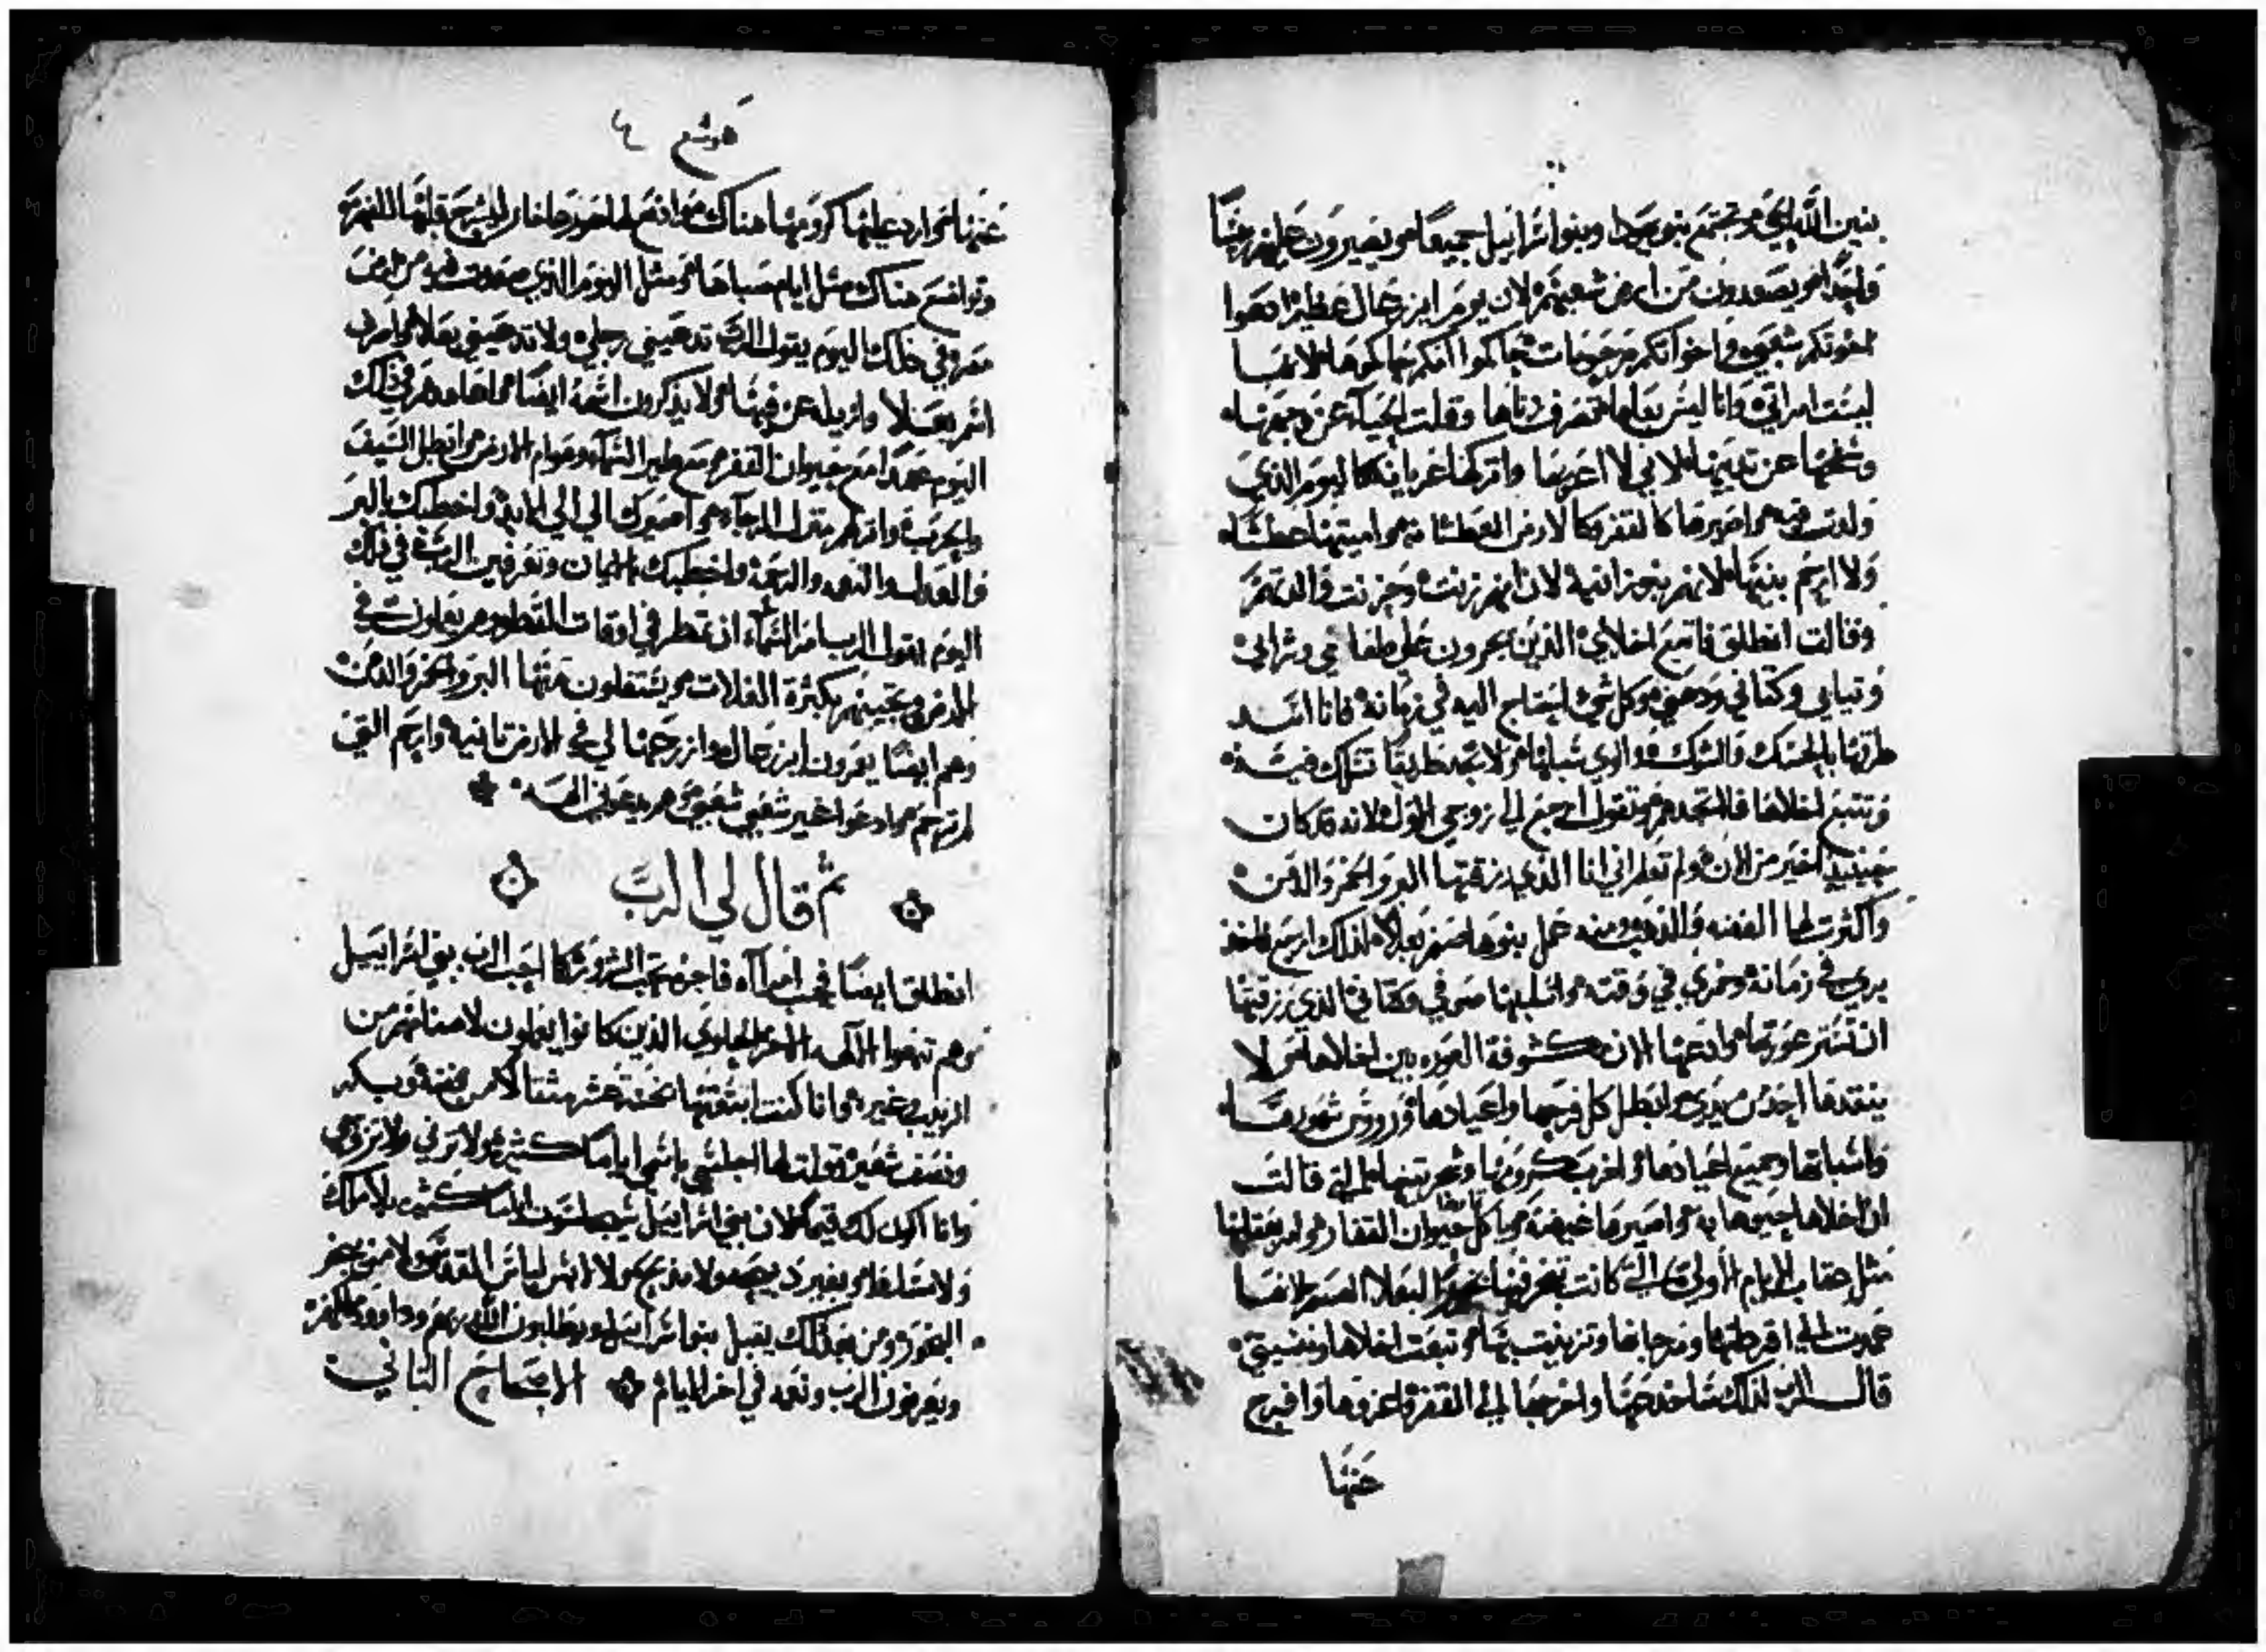 بنين الله الحي وتجتمع بنو يهودا وبنو اسرائيل جميعًا ويصيرون عليهم رئيسًا
واحدًا ويصعدون من ارض شعبتهم لان يوم ايزرعال عظيم ادعوا
اخوتكم شعبي واخواتكم مرحومات حاكموا امكم حاكموها لانها
ليست امراتي وانا ليس بعلها لتصرف زناها وقلت الحياء عن وجهها
وظلمها عن ثدييها لاني لا اعريها واتركها عريانه كاليوم الذي
ولدت فيه واصيرها كالقفر وكالارض العطشانه واميتها عطشًا
ولا ارحم بنيها لانهم بنو زانية لان امهم زنت وخزنت والدتهم
وقالت انطلق فاتبع اخلاي الذين يجرون علي طعامي وشرابي
وثيابي وكتاني ودهني وكل شي احتاج اليه في زمانه فانا اسد
طرقها بالحسك والشوك واوري سبلها ولا تجد طريقًا تسلك فيه
وتتبع اخلاها فلا تجدهم وتقول ارجع الي زوجي الاول لانه قد كان
حينيذ اخير من الان ولم تعلم اني انا الذي رزقتها البر والخمر والدهن
واكثرت لها الفضه والذهب ومنه عمل بنوها صنم بعلا لذلك ارجع فاخذ
بري في زمانه وخمري في وقته واسلبها صوفي وكتاني الذي رزقتها
ان تستر عورتها وادعها الان مكشوفة العوره بين اخلاها لا
ينقذها احد من يدي وابطل كل فرحها واعيادها وروس شهورها
واسباتها وجميع اعيادها واخرب كرومها وشجر تينها التي قالت
ان اخلاها حبوها به واصيرها غيضة وياكل حيوان القفار وامر بعقابها
مثل عقاب الايام الاولي التي كانت تبخر فيها بخورًا لبعلا الصنم لانها
عمدت الي اقرطتها ومرجانها وتزينت بها وتبعت اخلاها ونسيتني
قال الرب لذلك ساخدعها واخرجها الي القفر واعزوها وافرج
عنها
هوشع ٤
عنها اخوار دعلنها كرومها هناك
وتواضع هناك مثل ايام صباها ومثل اليوم الذي صعدت فيه من ارض
مصر وفي ذلك اليوم يقول الرب تدعيني رجلي ولا تدعيني بعلا
اسم بعلا وازيله عن فيها ولا يذكرون اسمه ايضًا اعاهدهم في ذلك
اليوم عهدًا مع حيوان القفر مع طير السماء وهوام الارض وابطل السيف
والحرب واقرهم مقرا الرجاء واصيرك الي الي الابد واخطبك بالبر
والعدل والنعمه والرحمة واخطبك بالايمان وتعرفين الرب في ذلك
اليوم يقول الرب امر السماء ان تمطر في اوقات القطر
الارض وتجيبهم بكثرة الغلات ويستغلون منها البر والخمر والدهن
وهم ايضًا يعرون ايزرعال وازرعها لي في الارض ثانيه وارحم التي
لم ترحم وادعوا غير شعبي شعبي وهم يدعوني الهه
ثم قال لي الرب
انطلق ايضًا فحب امراه فاجره تحب الشرور كما احب الرب بني اسراييل
وهم تبعوا الالهه الاخر الذين كانوا يعملون لاصنامهم من
الزبيب وغيره وانا كنت ابتعتها بخمسة عشر مثقالا من فضه وبكر
ونصف شعير وقولت لها اجلسي باسمي ايامًا كثيره ولا تزني ولا تزوجي
وانا اكون لك قيمًا لان بني اسراييل سيجلسون ايامًا كثيره بلا ملك
ولا مسلط وبغير ذبيحه ولا مذبح ولا لابس لباس القدس ولا من يبخر
البخور ومن بعد ذلك يقبل بنو اسراييل ويطلبون الله ربهم وداوود ملكهم
ويعرفون الرب ونعمه في اخر الايام الاصحاح الثاني